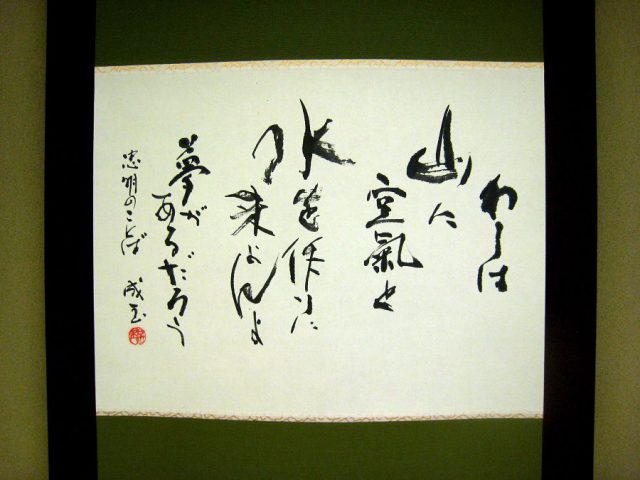 わしは
山に
空氣と
水を作りに
来よんよ
夢が
あるだろう
忠明のことば 成玉